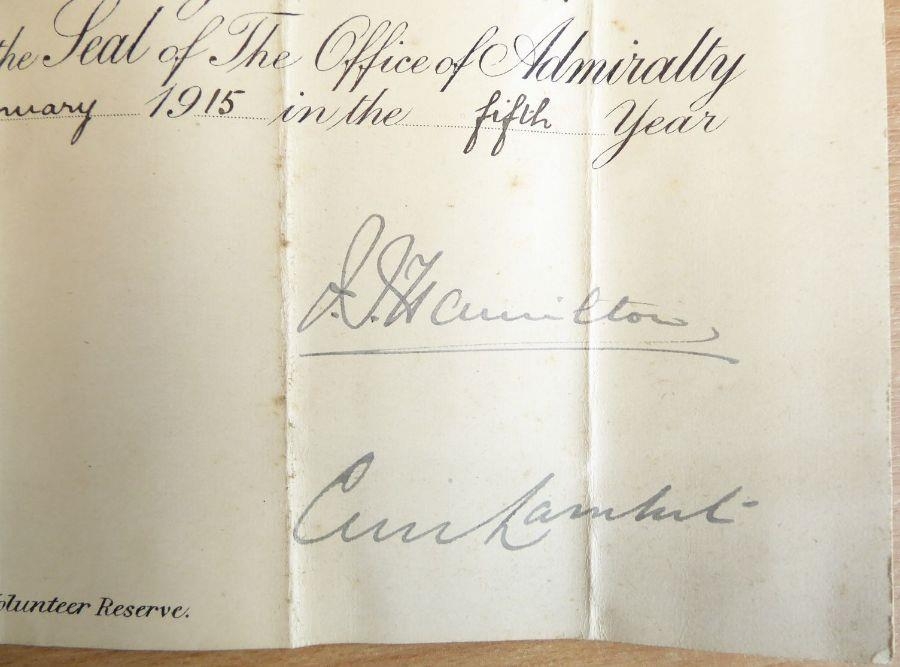 the Seal of The Office of Admiralty
nuary 1915 in the fifth Year
F. T. Hamilton
Cecil Lambert
Volunteer Reserve.